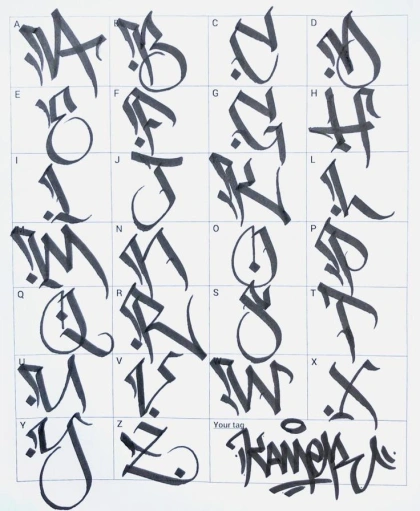 A B C D
E F G H
I J K L
M N O P
Q R S T
U V W X
Y Z Your tag
KAMER